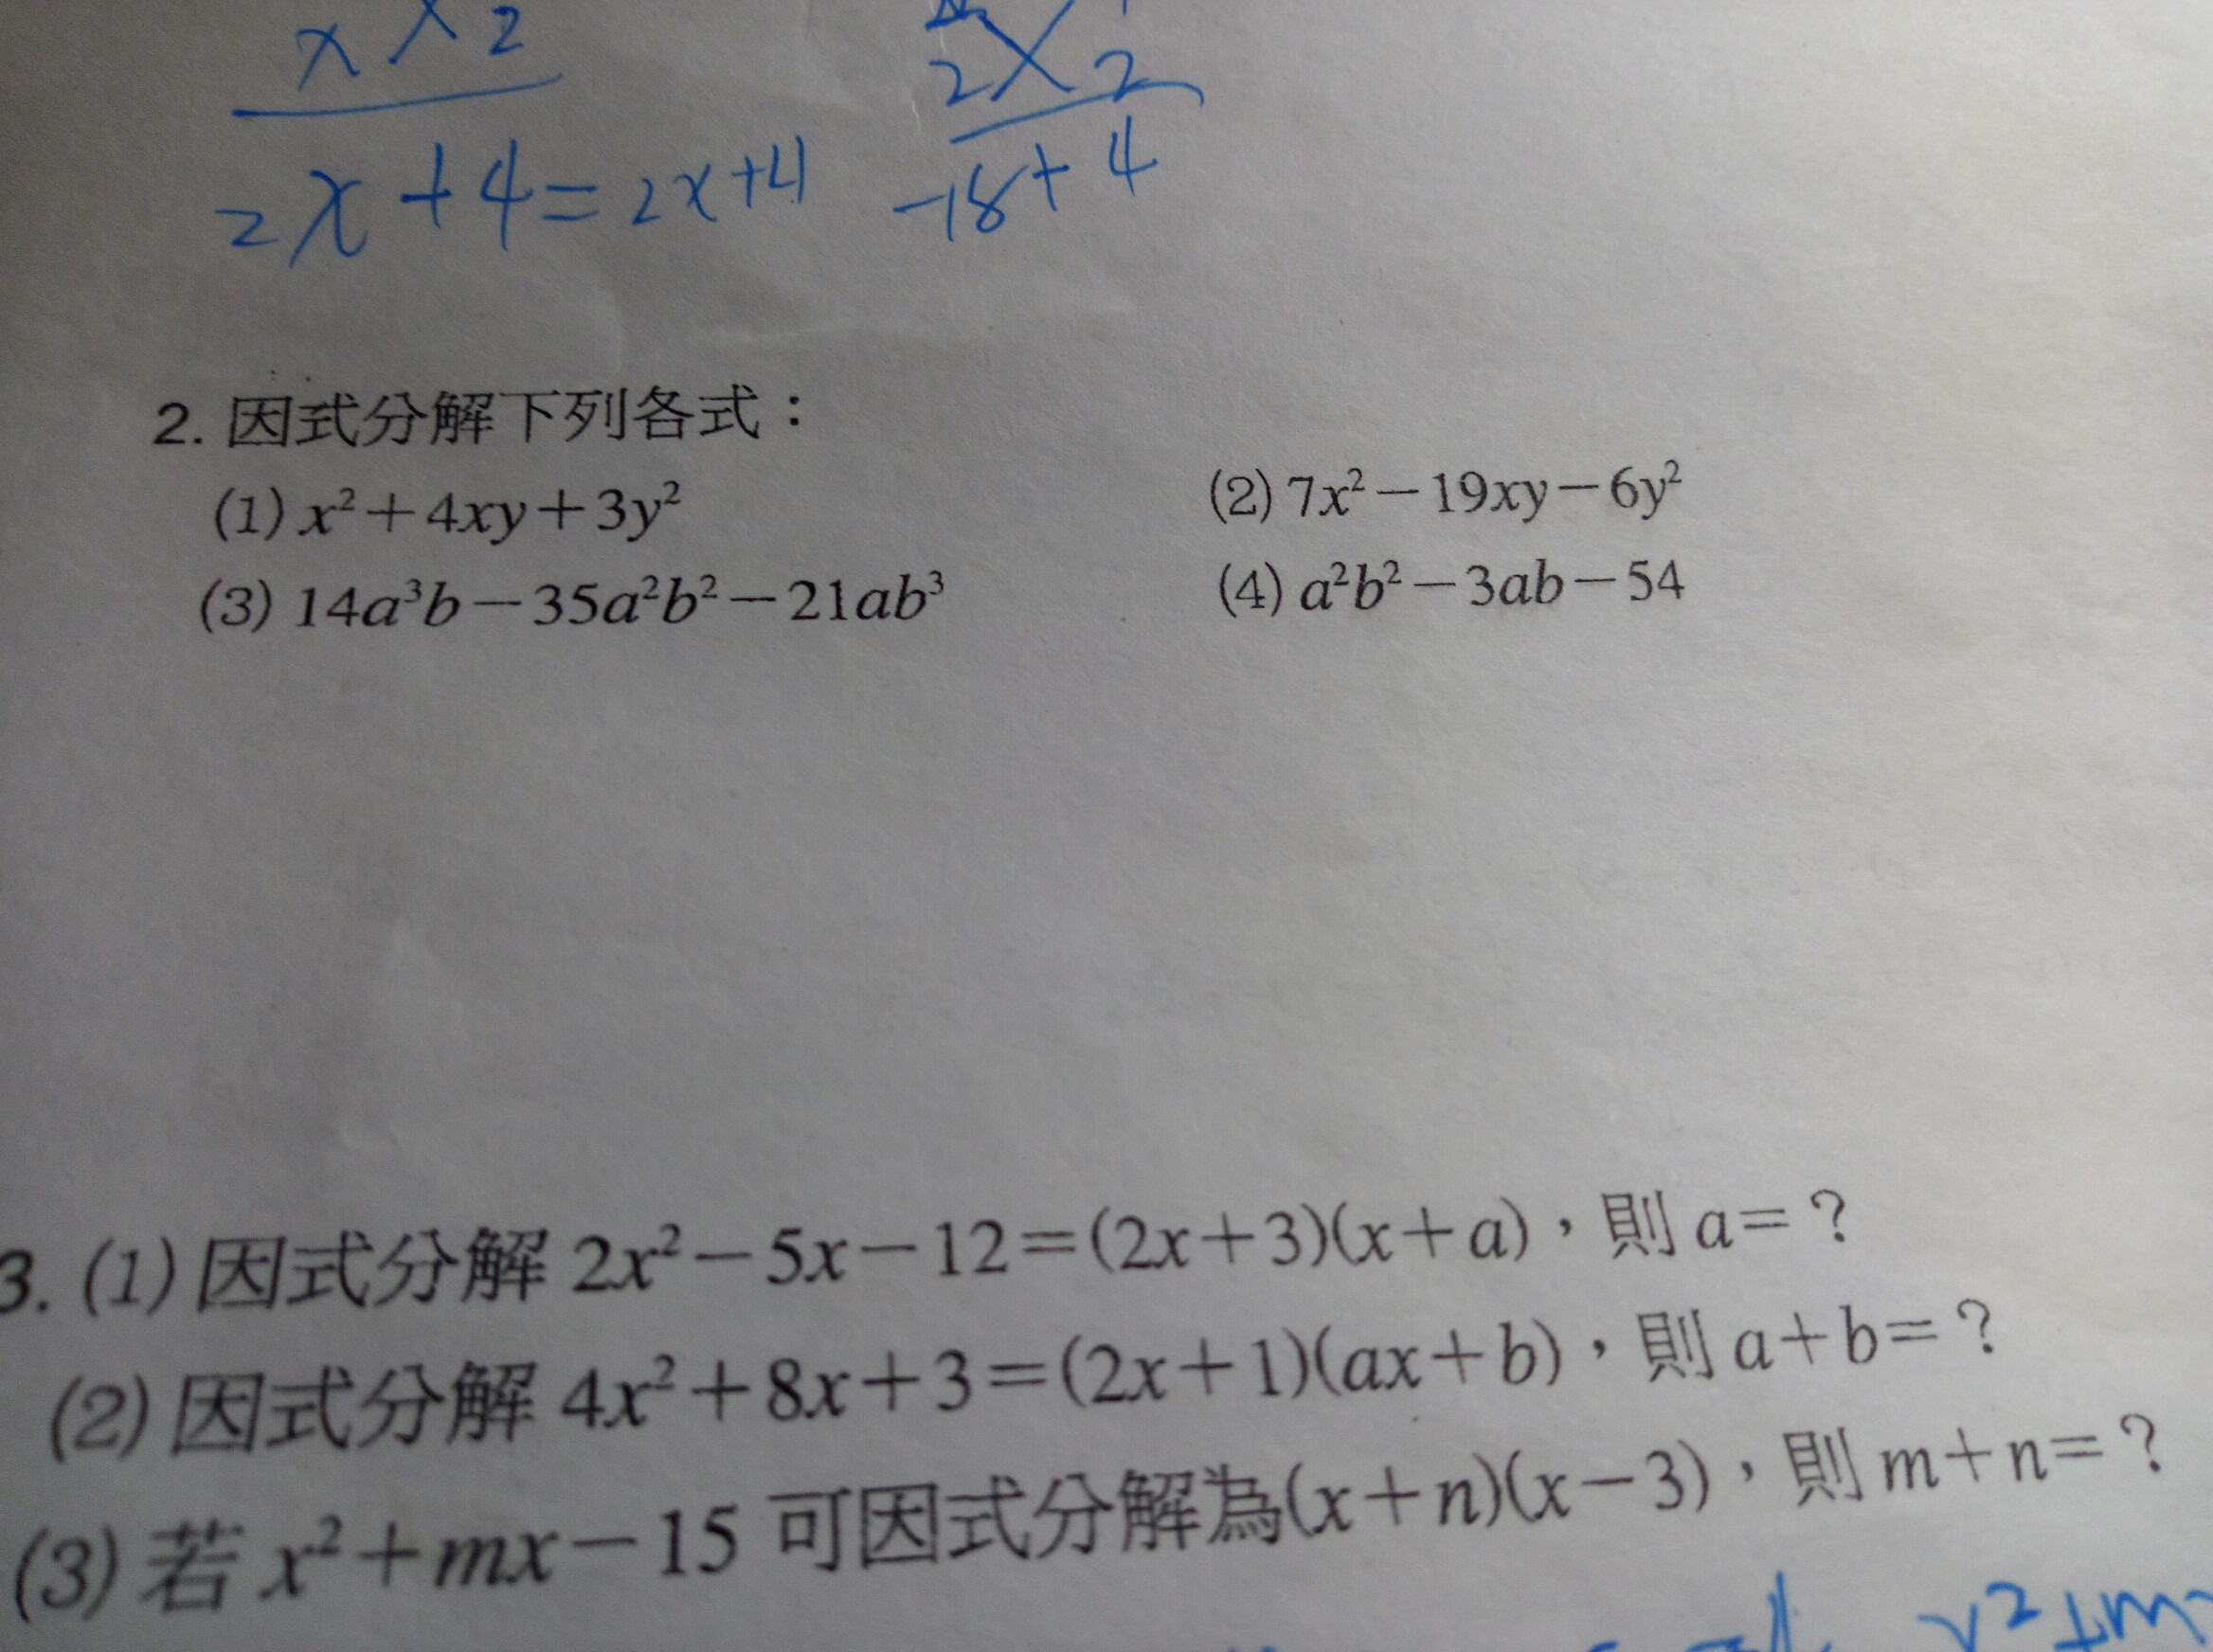 x 2
2 2
2x+4=2x+4 -18+4
2. 因式分解下列各式：
(1) x²+4xy+3y² (2) 7x²-19xy-6y²
(3) 14a³b-35a²b²-21ab³ (4) a²b²-3ab-54
3. (1) 因式分解 2x²-5x-12=(2x+3)(x+a)，則 a=？
(2) 因式分解 4x²+8x+3=(2x+1)(ax+b)，則 a+b=？
(3) 若 x²+mx-15 可因式分解為(x+n)(x-3)，則 m+n=？
x²+m